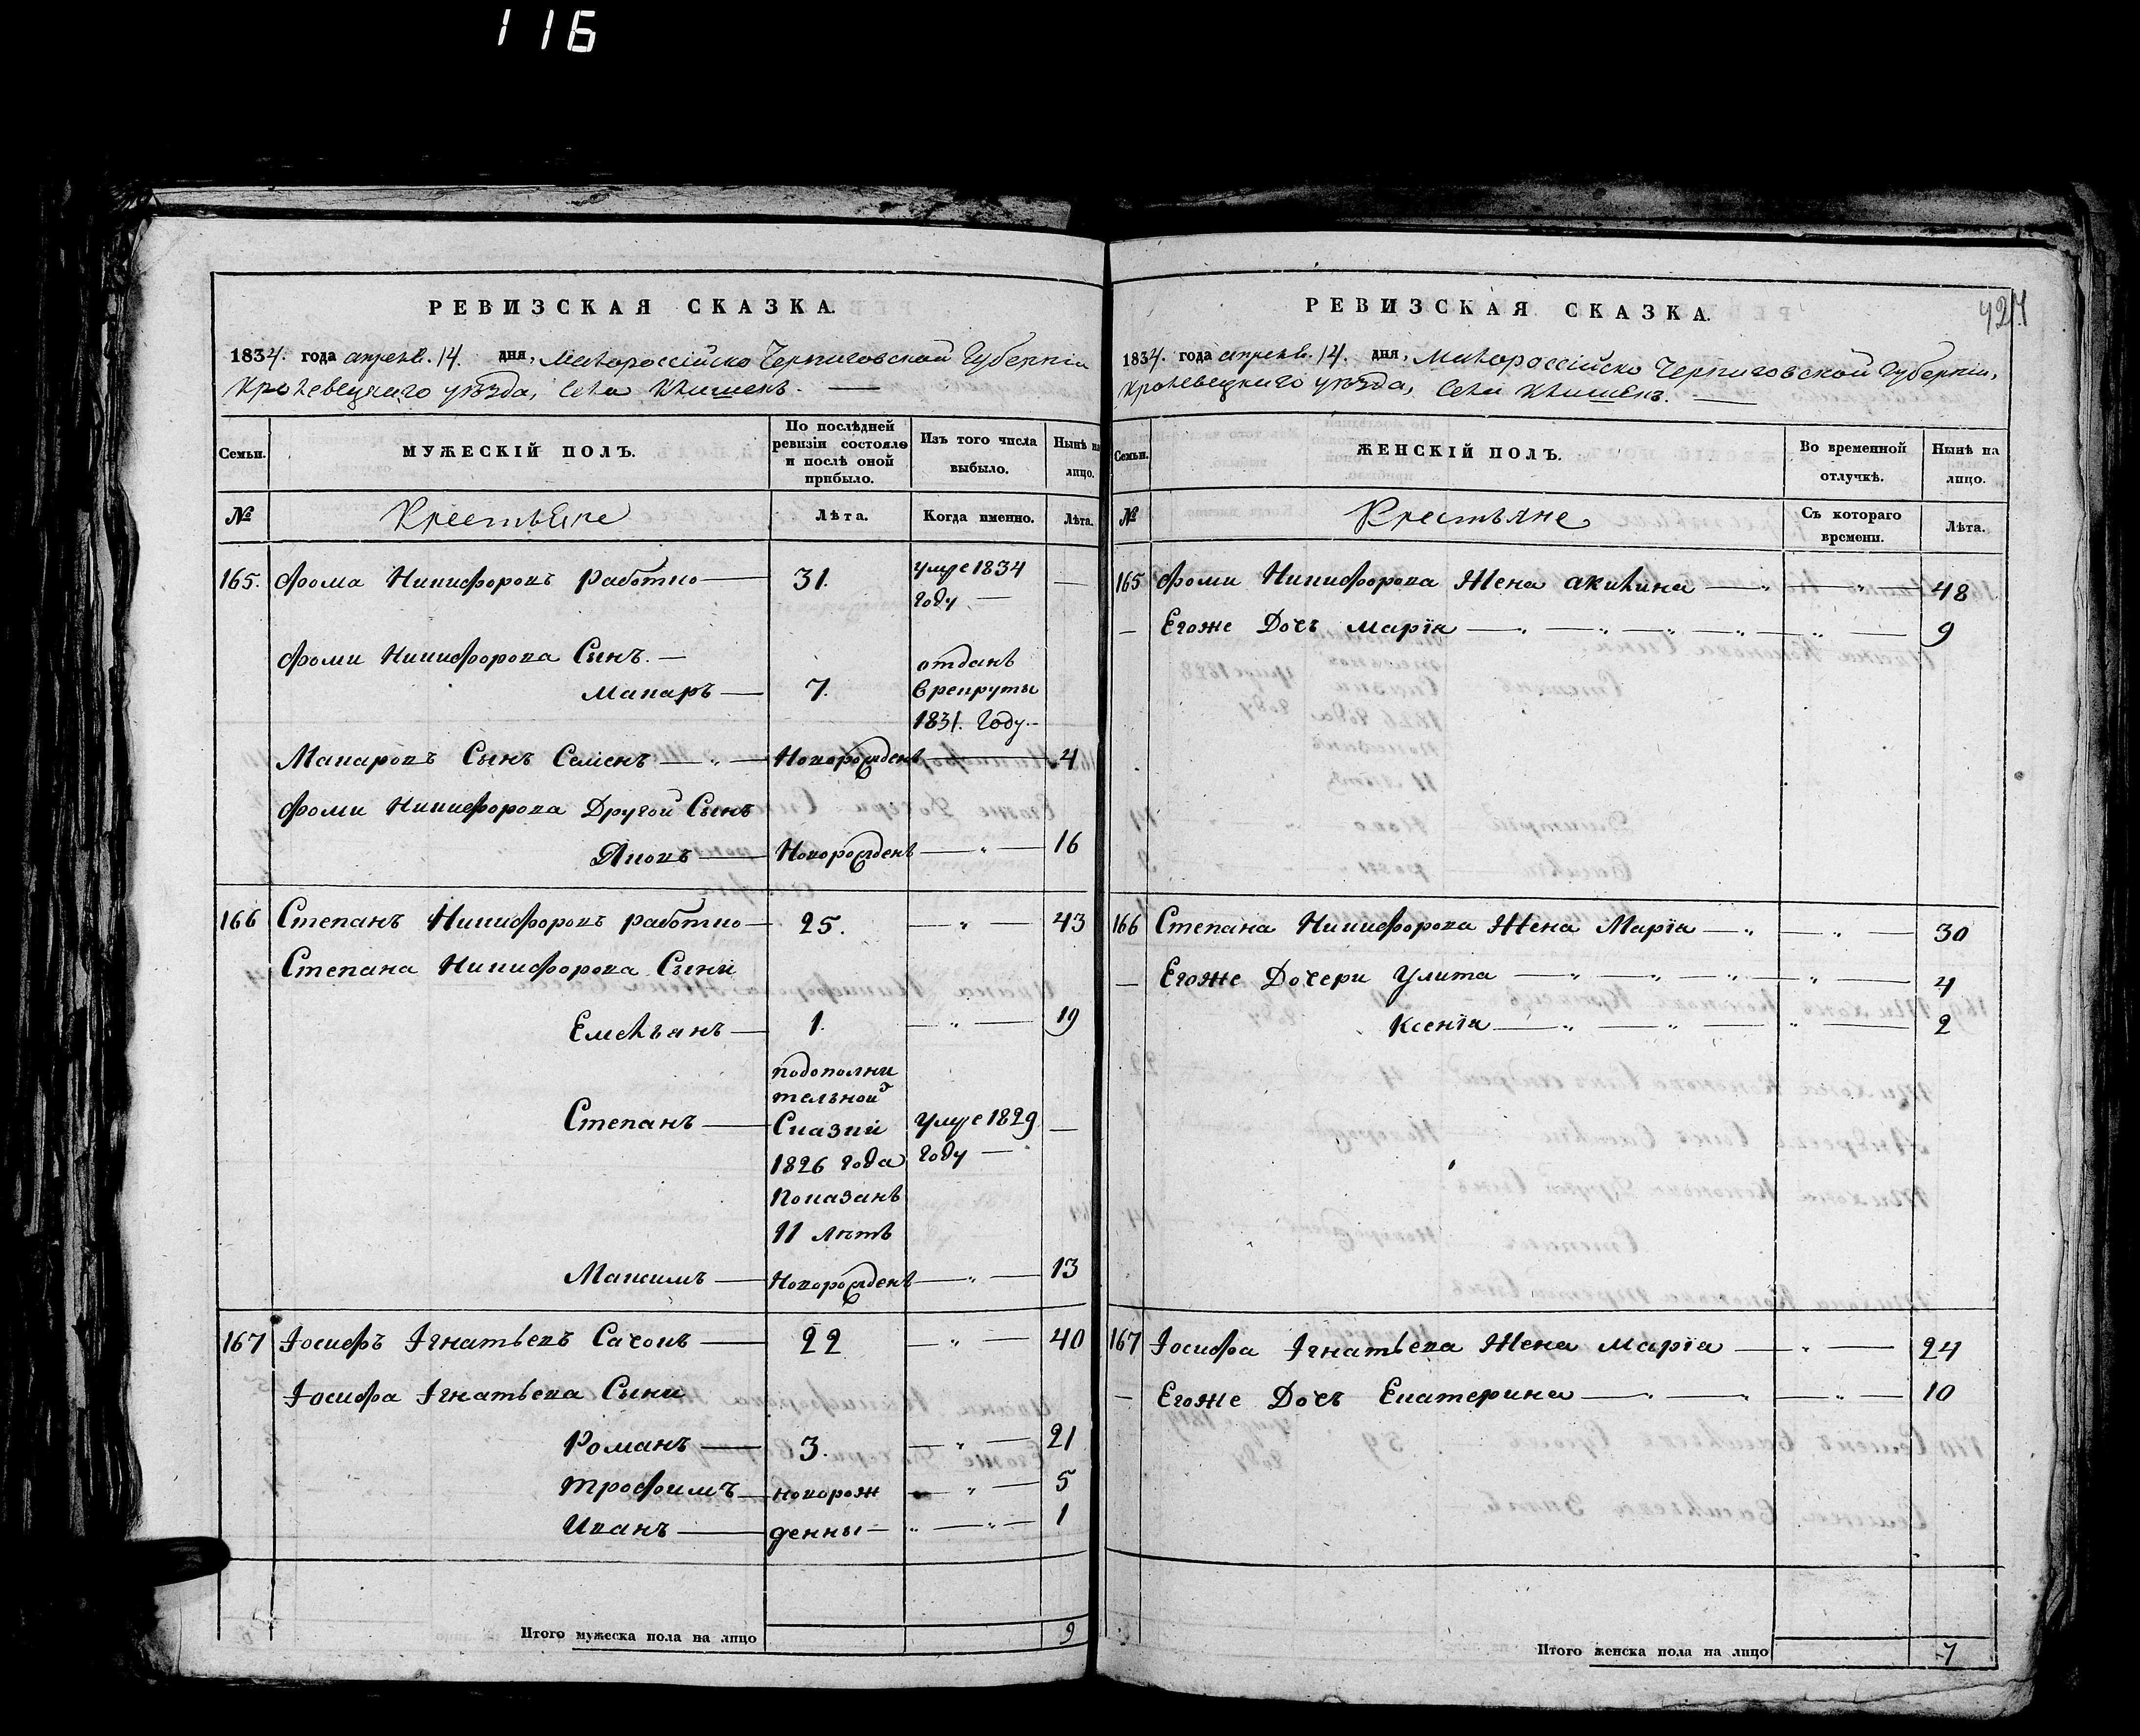 116
РЕВИЗСКАЯ СКАЗКА.
1834. года апреля. 14. дня, Малороссійско Черниговской Губерніи
Кролевецкаго уѣзда, Села Клишекъ.
Семьи.
МУЖЕСКІЙ ПОЛЪ.
По послѣдней ревизіи состояло и послѣ оной прибыло.
Изъ того числа выбыло.
Нынѣ на лицо.
№
Крестьяне
Лѣта.
Когда именно.
Лѣта.
165. Фома Никифоровъ Работко — 31. умре 1834 —
году —
Фоми Никифорова Сынъ. — отданъ
Макаръ — 7. в рекруты
1831. Году. —
Макаровъ Сынъ Семенъ — " — Новорожденъ — 4
Фоми Никифорова Другой Сынъ
Яковъ — Новорожденъ — " — 16
166 Степанъ Никифоровъ работко — 25. — " — 43
Степана Никифорова Сыни
Емельянъ — 1. — " — 19
подополни
тельной
Степанъ — Сказки умре 1829 —
1826 года году —
Показанъ
11 лѣтъ
Максимъ — Новорожденъ — " — 13
167 Іосифъ Ігнатьевъ Сачокъ — 22 — " — 40
Іосифа Ігнатьева Сыни
Романъ — 3. — " — 21
Трофимъ — новорож — " — 5
Иванъ — денны — " — " — 1
Итого мужеска пола на лицо 9
РЕВИЗСКАЯ СКАЗКА.
1834. года апреля. 14. дня, Малороссійско Черниговской Губерніи,
Кролевецкаго уѣзда, Села Клишекъ. —
Семьи.
ЖЕНСКІЙ ПОЛЪ.
Во временной отлучкѣ.
Нынѣ на лицо.
№
Крестьяне
Съ котораго времени.
Лѣта.
165 Фоми Никифорова Жена акилина — " — " — 48
— Егоже Дочъ Марія — " — " — " — " — " — 9
166 Степана Никифорова Жена Марія — " — " — 30
— Егоже Дочери Улита — " — " — " — " — 4
Ксенія — " — " — " — 2
167 Іосифа Ігнатьева Жена Марія — " — 24
— Егоже Дочъ Екатерина — " — " — " — 10
Итого женска пола на лицо 7